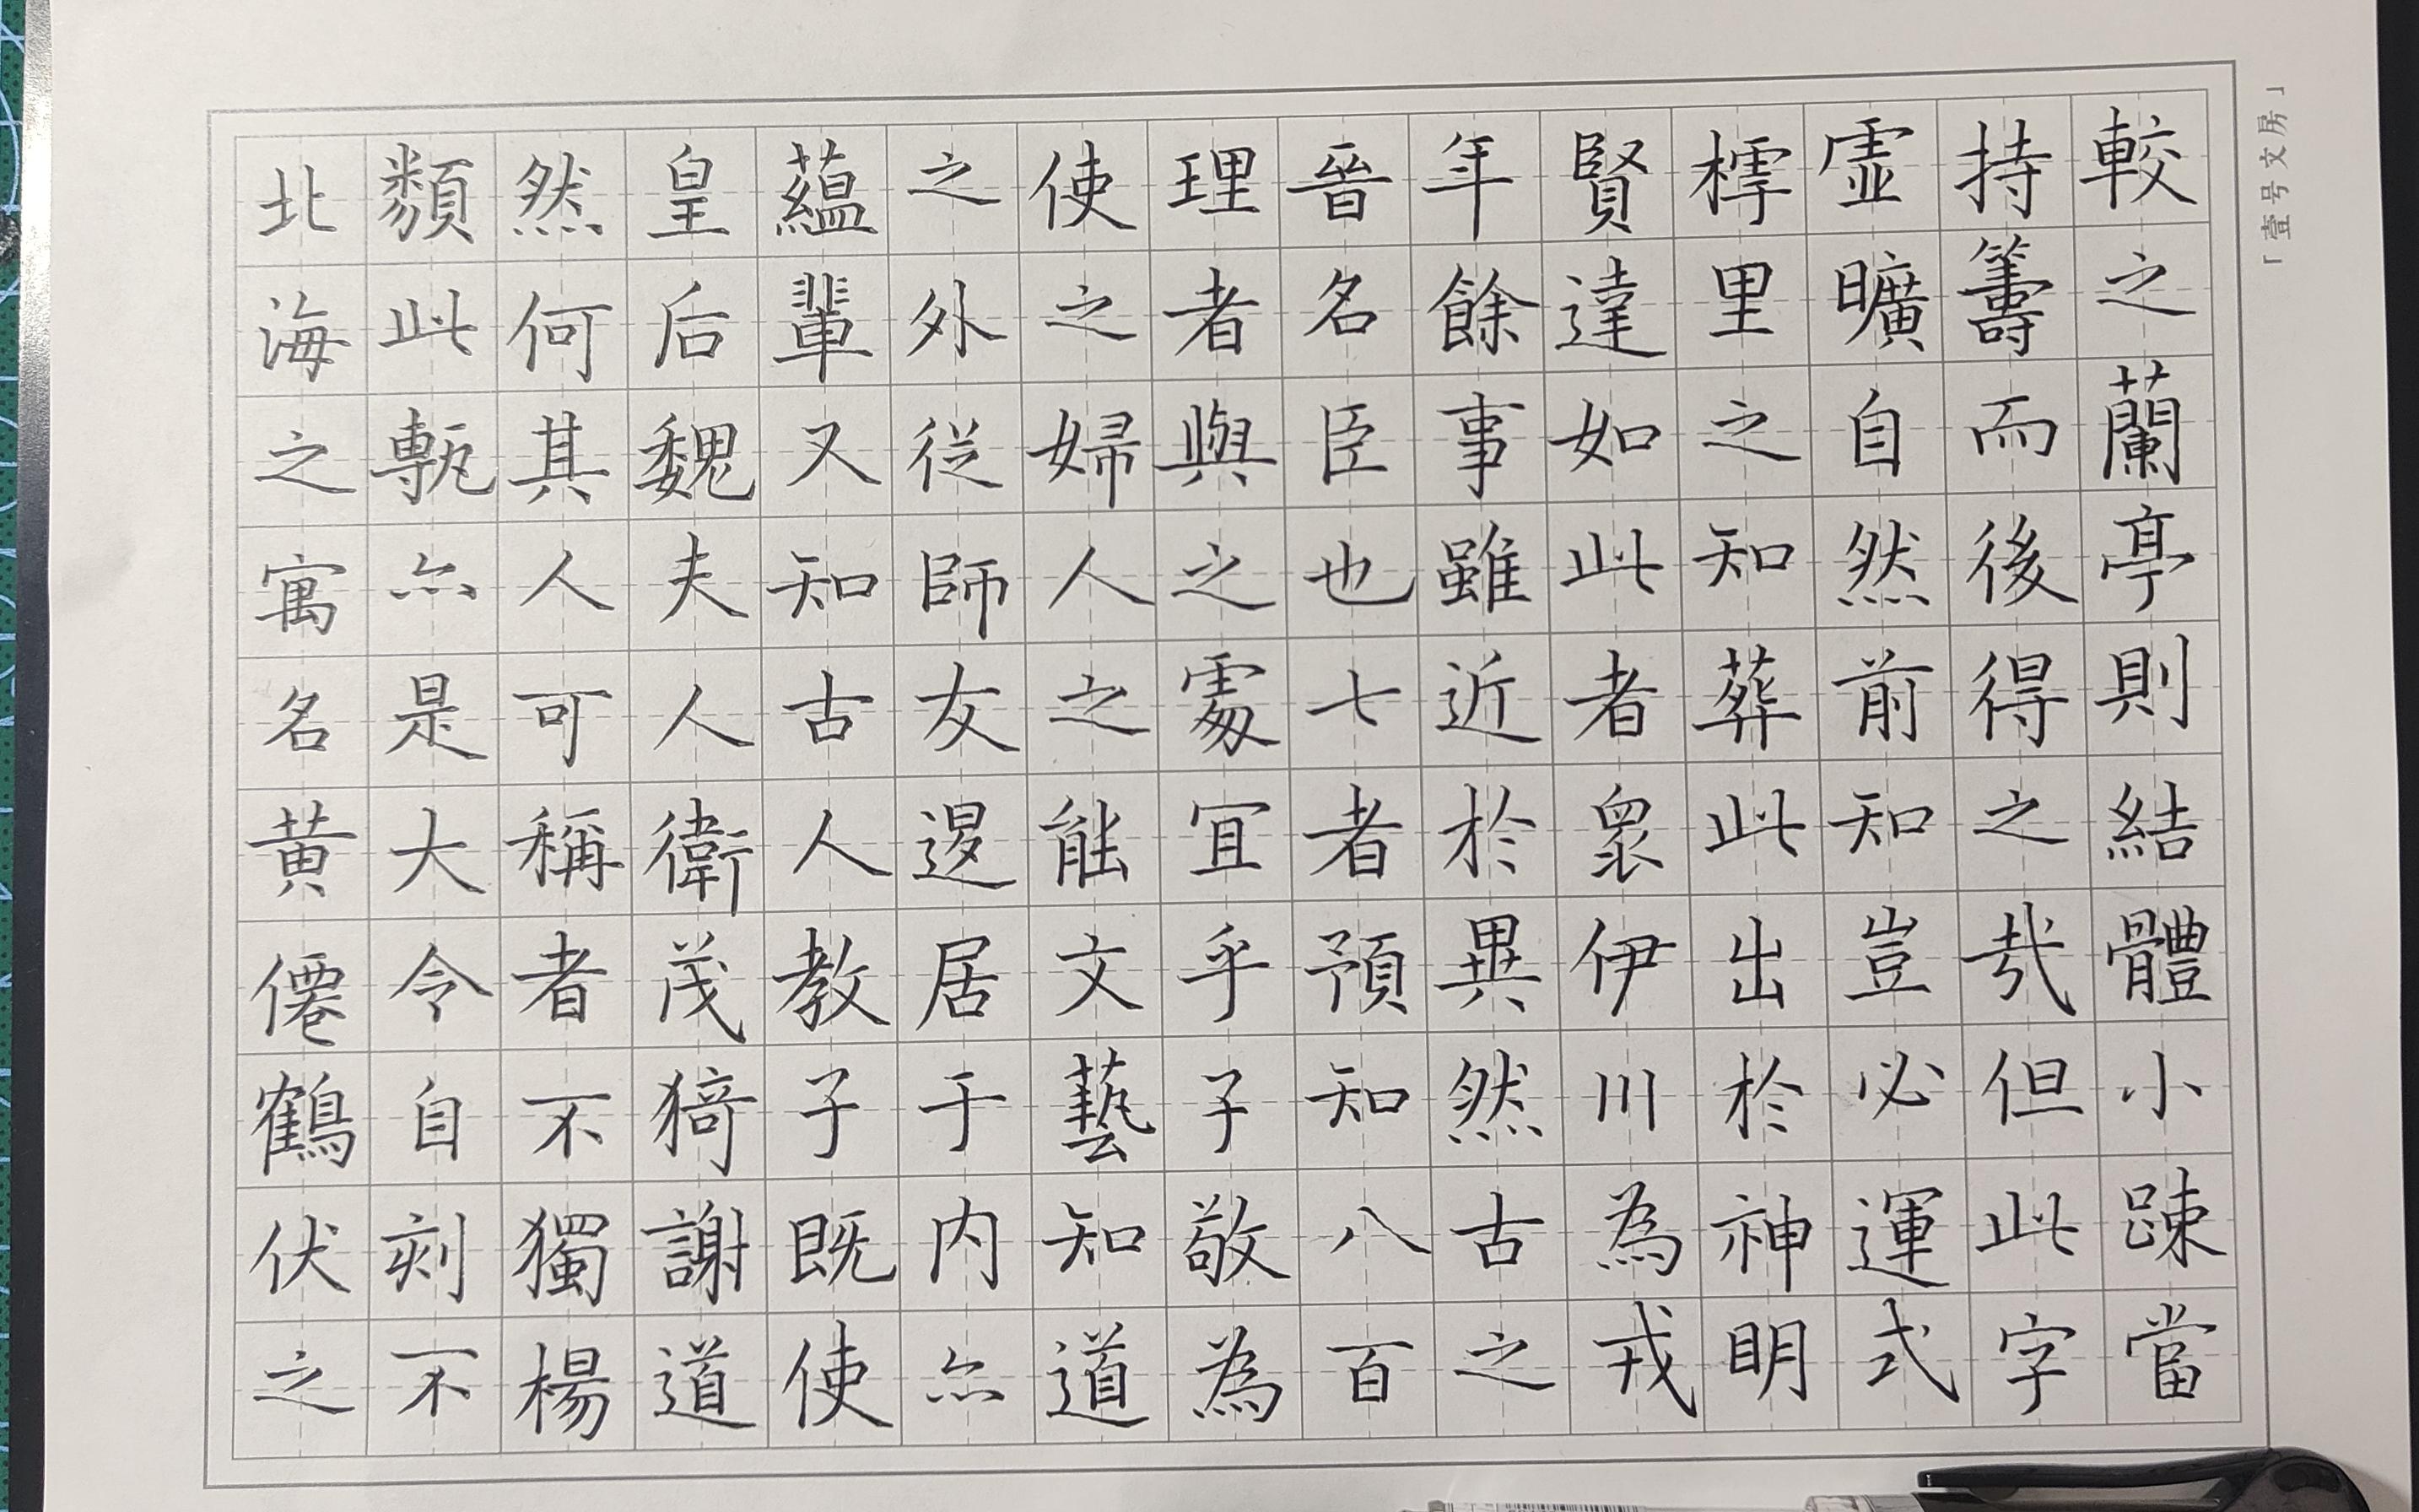 較之蘭亭則結體小踈當
持籌而後得之㢤但此字
虛曠自然前知豈必運式
樗里之知葬此出於神明
賢達如此者眾伊川為戎
年餘事雖近於異然古之
晉名臣也七者預知八百
理者與之處宜乎子敬為
使之婦人之能文藝知道
之外從師友逻居于内亦
蘊輩又知古人教子既使
皇后魏夫人衛茂猗謝道
然何其人可稱者不獨楊
類此甎亦是大令自刻不
北海之寓名黄僊鶴伏之
「壹号文房」